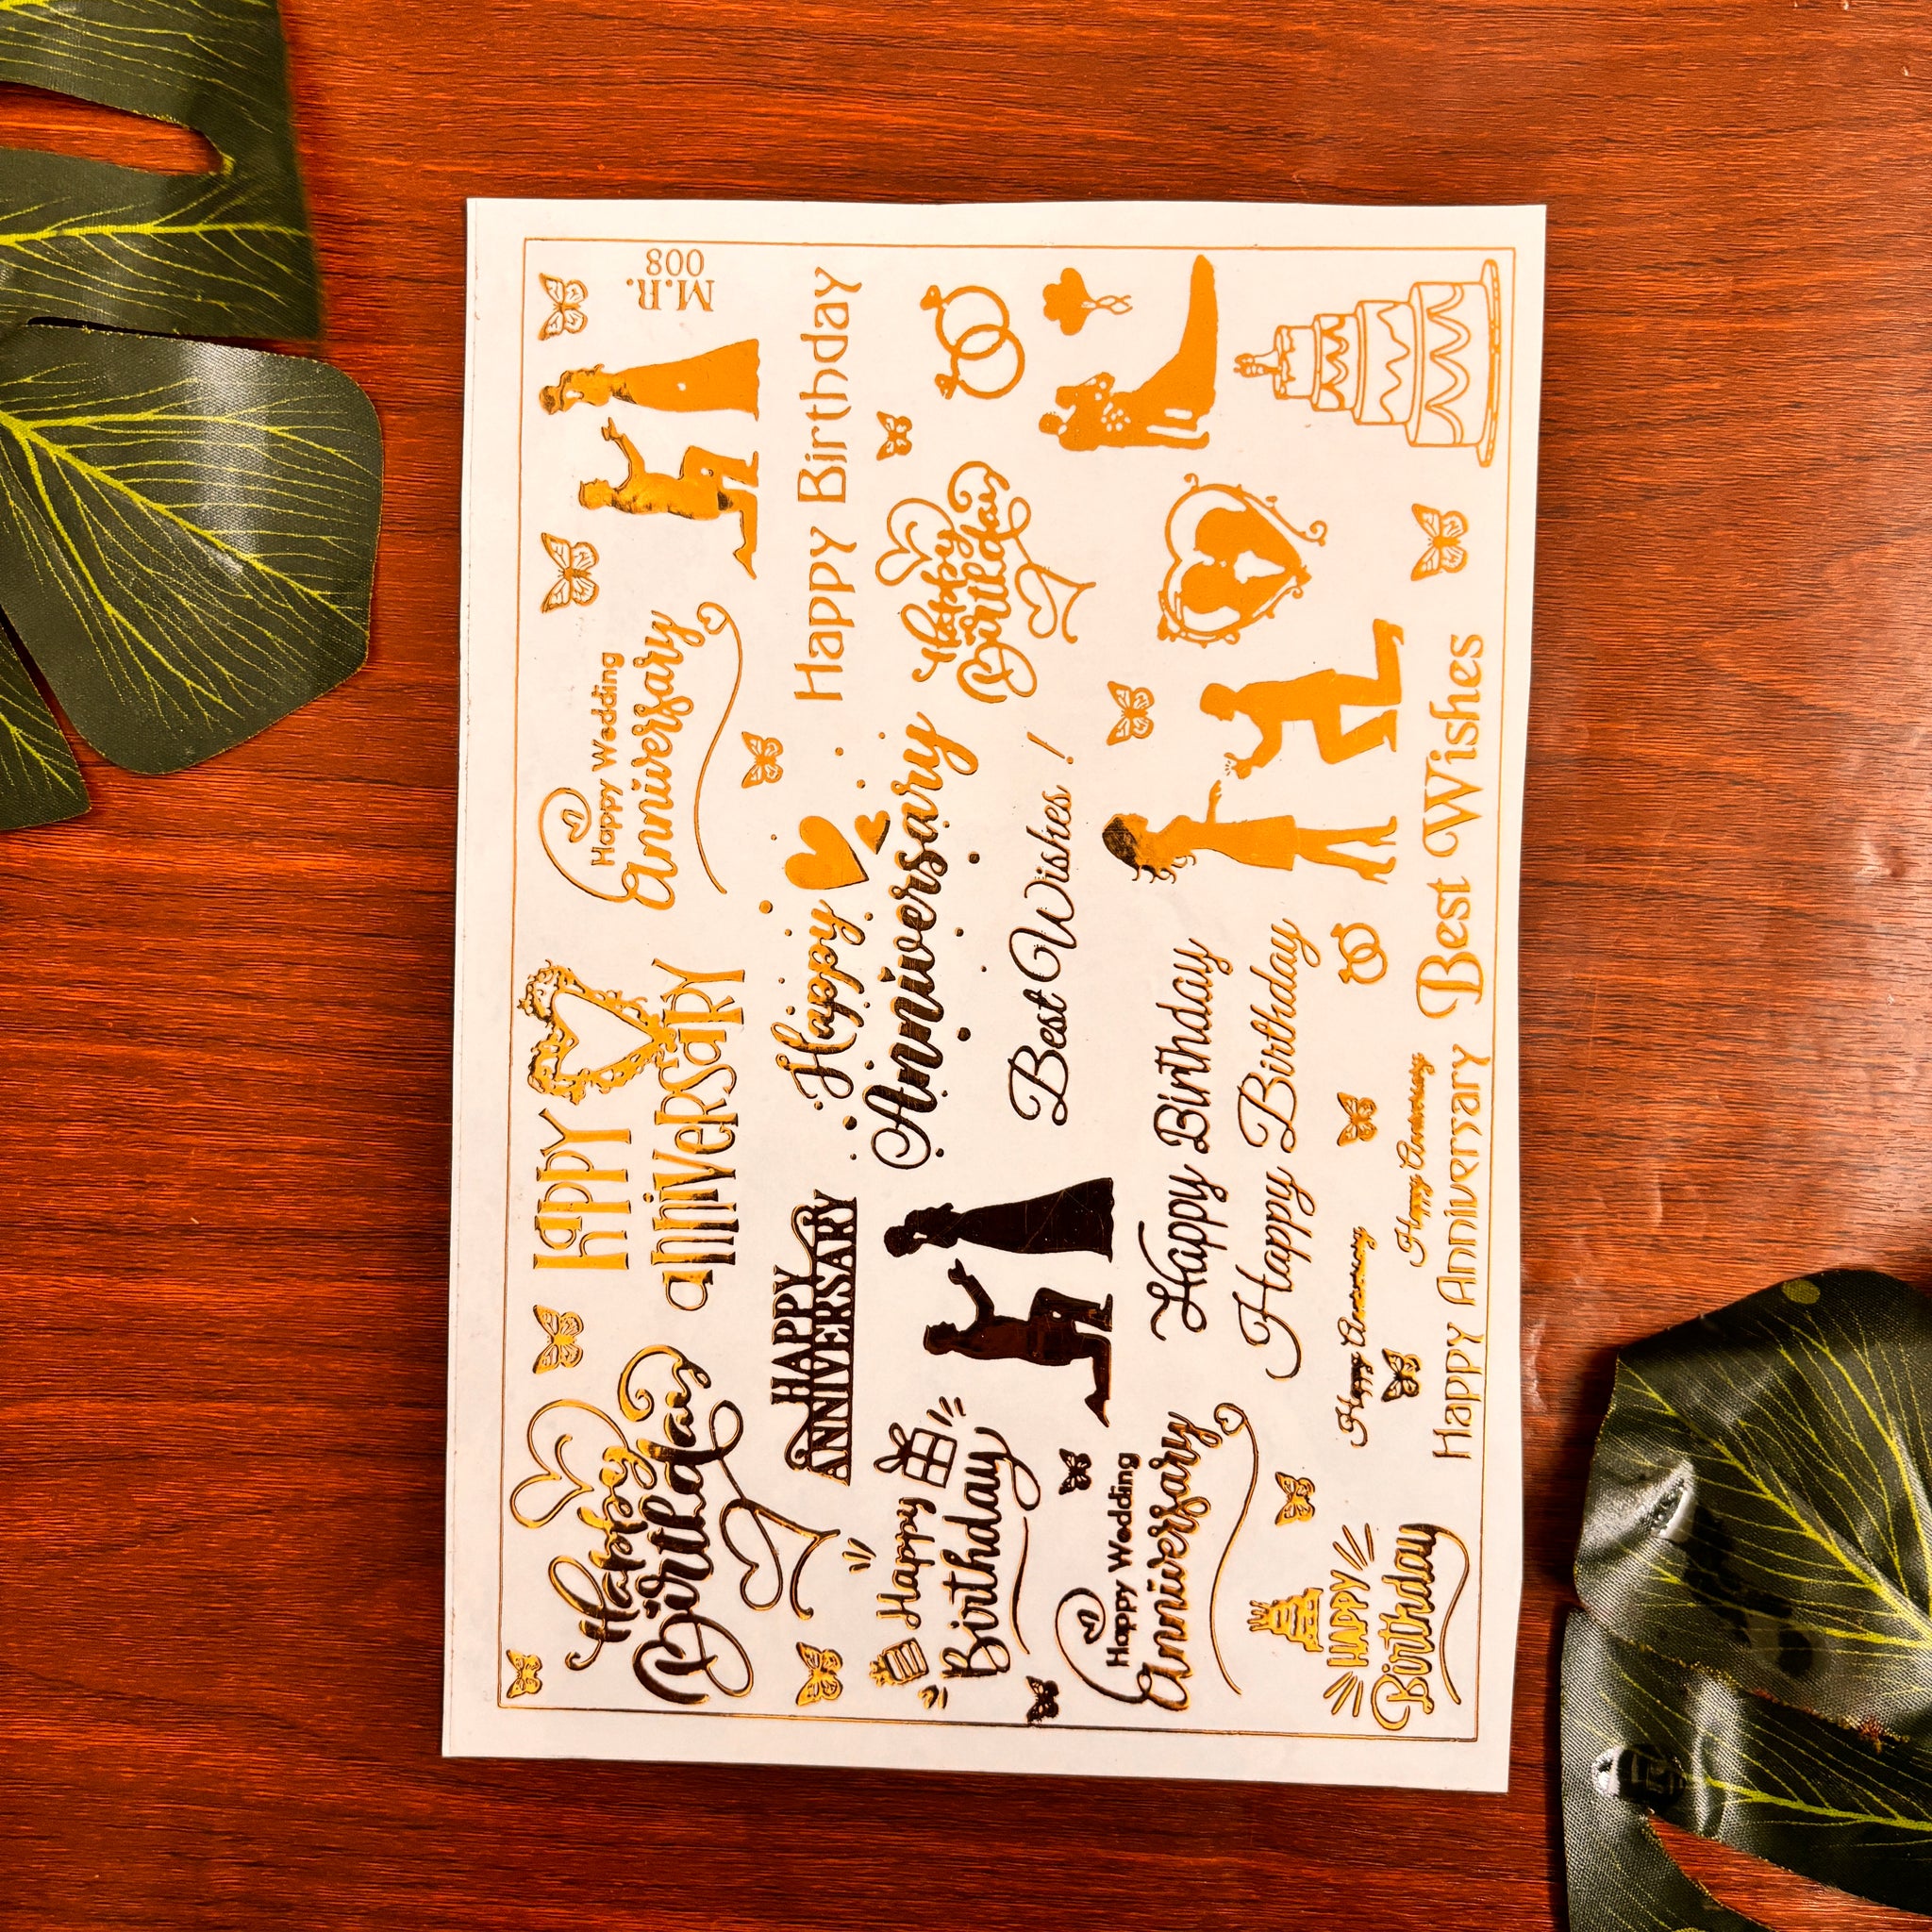 Happy
Birthday
HAPPY
aNNiVeRSaRY
Happy Wedding
Anniversary
M.R.
008
HAPPY
ANNIVERSARY
Happy
Anniversary
Happy Birthday
Happy
Birthday
Best Wishes !
Happy
Birthday
Happy Wedding
Anniversary
Happy Birthday
Happy Birthday
HAPPY
Birthday
Happy Anniversary
Happy Anniversary
Happy Anniveryary
Best Wishes